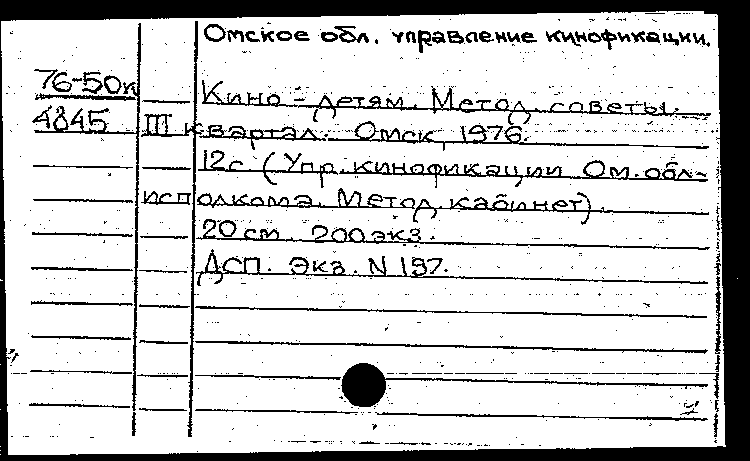 Омское обл. управление кинофикации.
76-50к
Кино - детям. Метод. советы.
4845 III квартал. Омск, 1976.
12с (Упр. кинофикации Ом. обл-
исполкома. Метод. кабинет).
20 см. 200 экз.
ДСП. Экз. N 197.